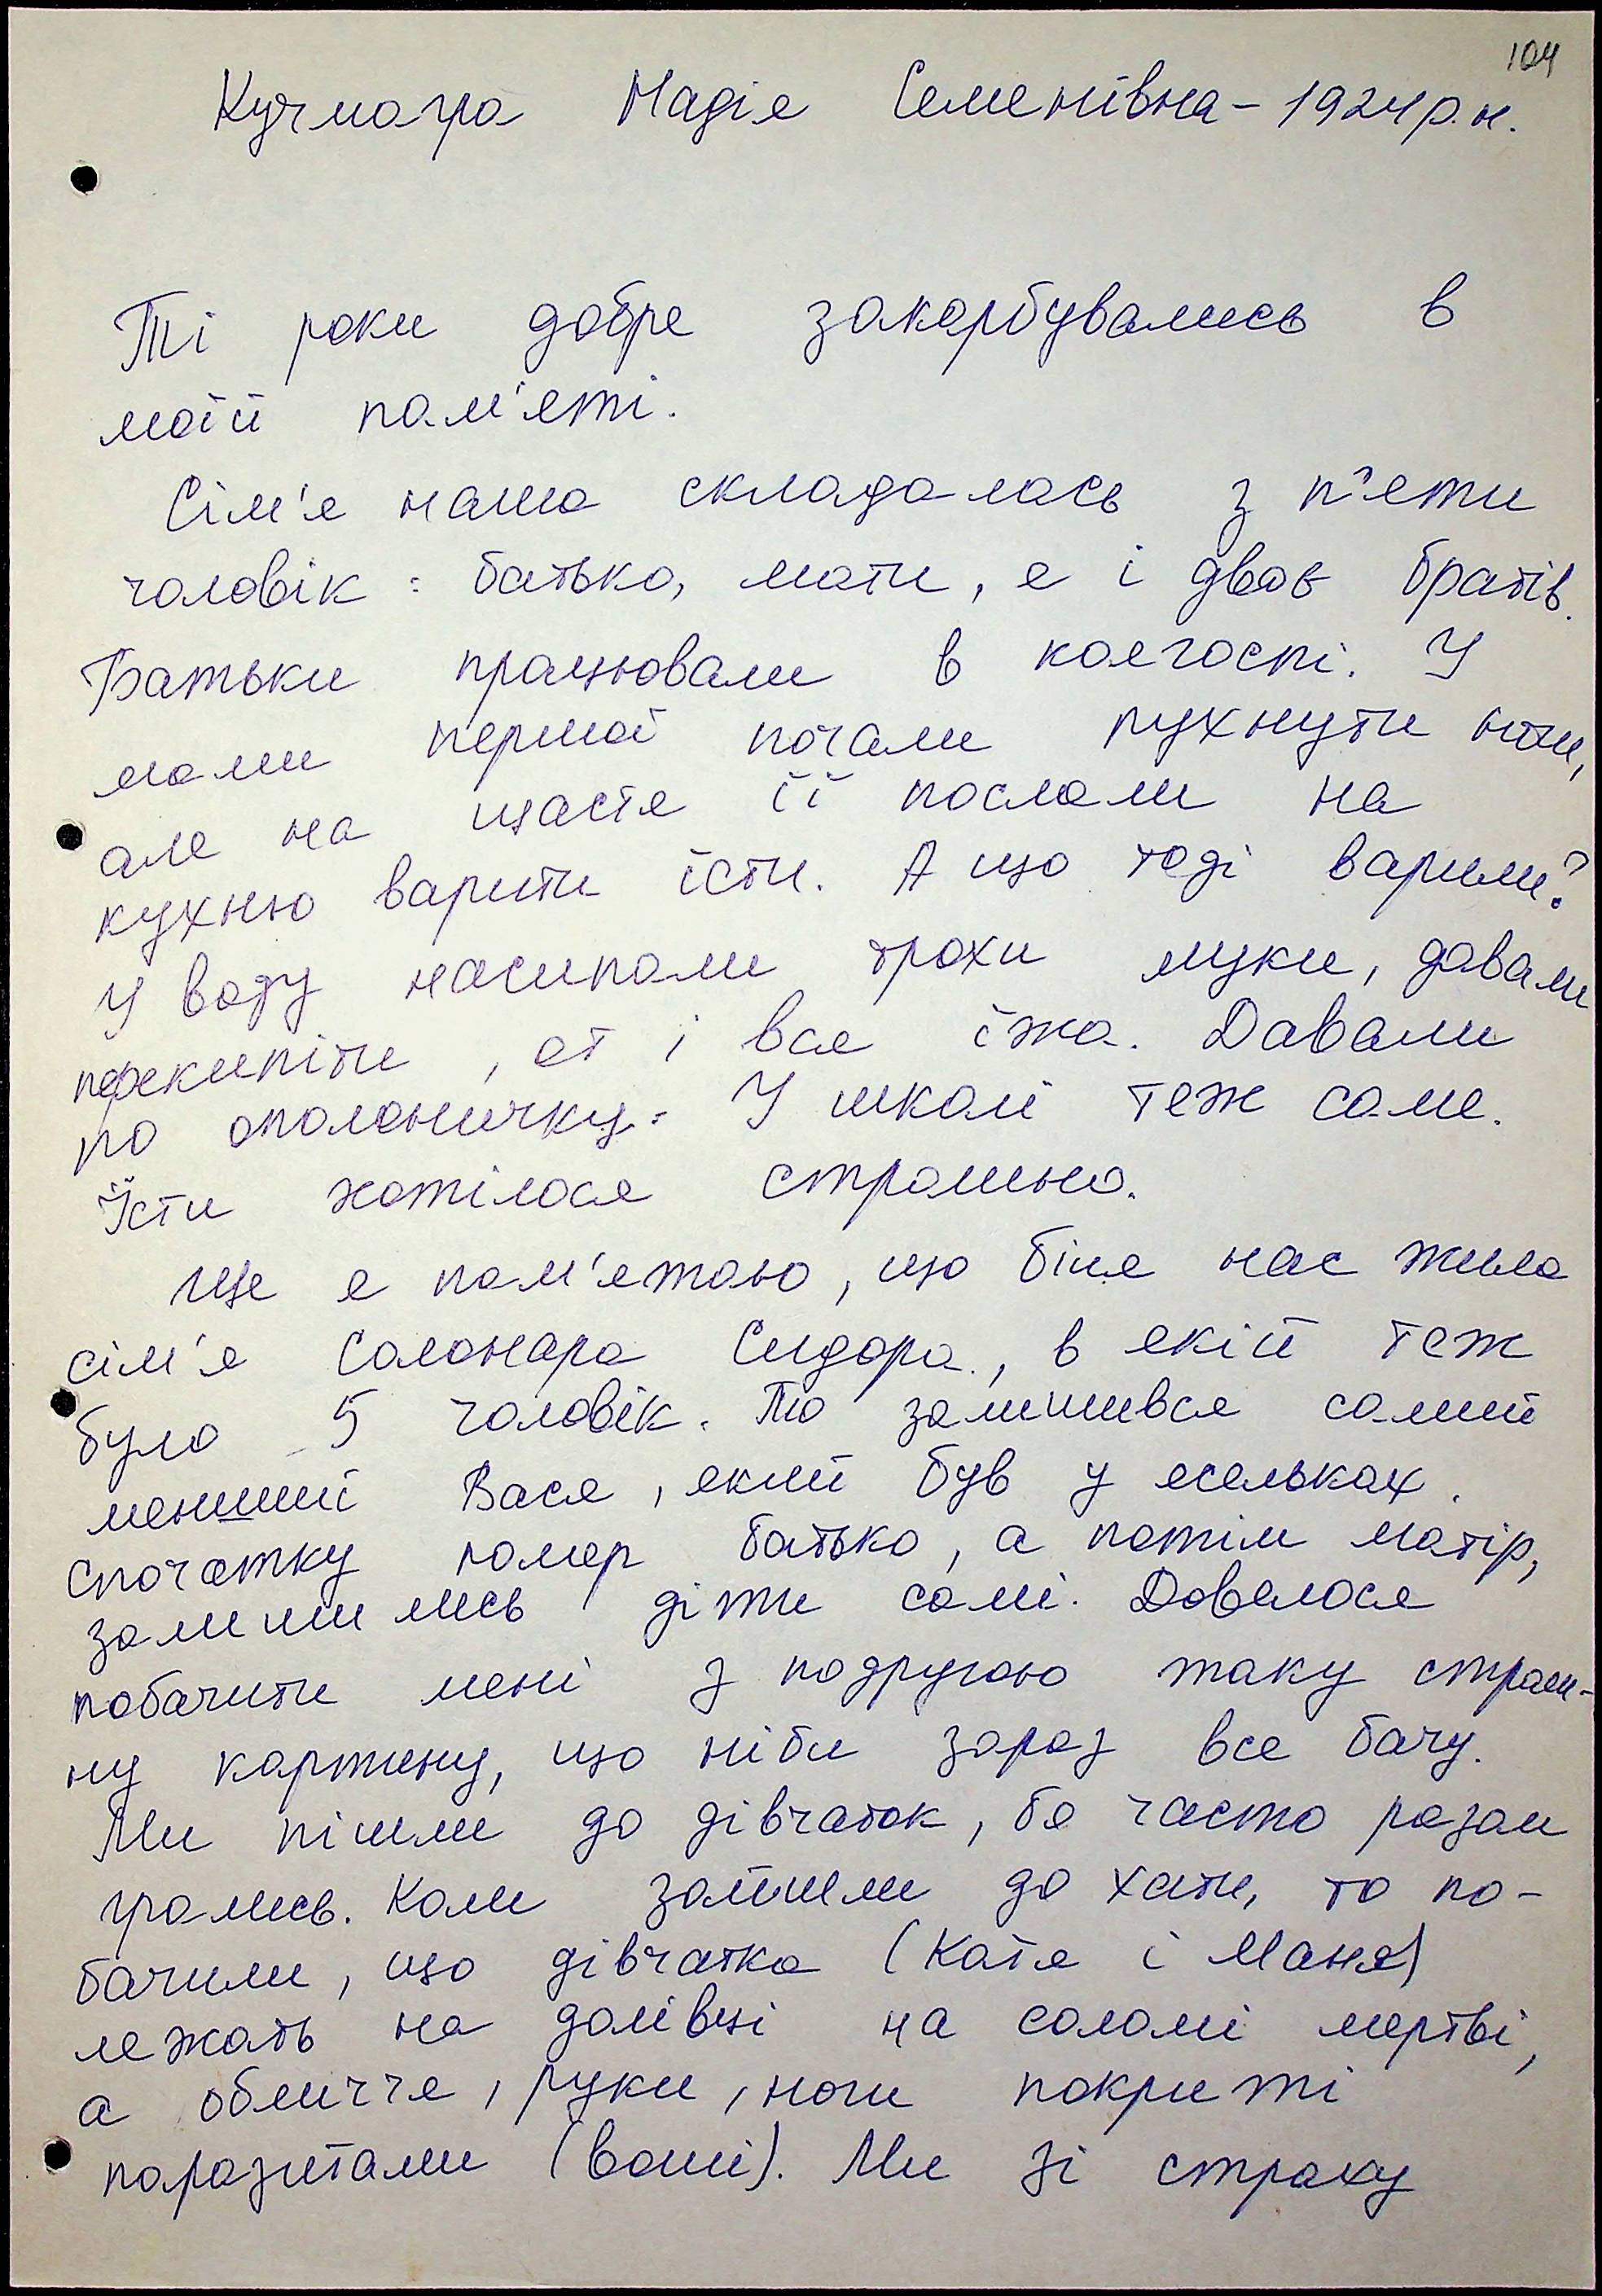 104
Кучмагра Надія Семенівна – 1924 р.н.
Ті роки добре закарбувались в
моїй пам'яті.
Сім'я наша складалась з п'яти
чоловік: батько, мати, я і двоє братів.
Батьки працювали в колгоспі. У
мами першої почали пухнути ноги,
але на щастя її послали на
кухню варити їсти. А що тоді варили?
У воду насипали трохи муки, давали
перекипіти, от і вся їжа. Давали
по ополоничку. У школі теж саме.
Їсти хотілося страшно.
Ще я пам'ятаю, що біля нас жила
сім'я Солонара Сидора, в якій теж
було 5 чоловік. То залишився самий
менший Вася, який був у ясельках.
Спочатку помер батько, а потім матір,
залишились діти самі. Довелося
побачити мені з подругою таку страш-
ну картину, що ніби зараз все бачу.
Ми пішли до дівчаток, бо часто разом
грались. Коли зайшли до хати, то по-
бачили, що дівчатка (Катя і Маня)
лежать на долівці на соломі мертві,
а обличчя, руки, ноги покриті
паразитами (воші). Ми зі страху